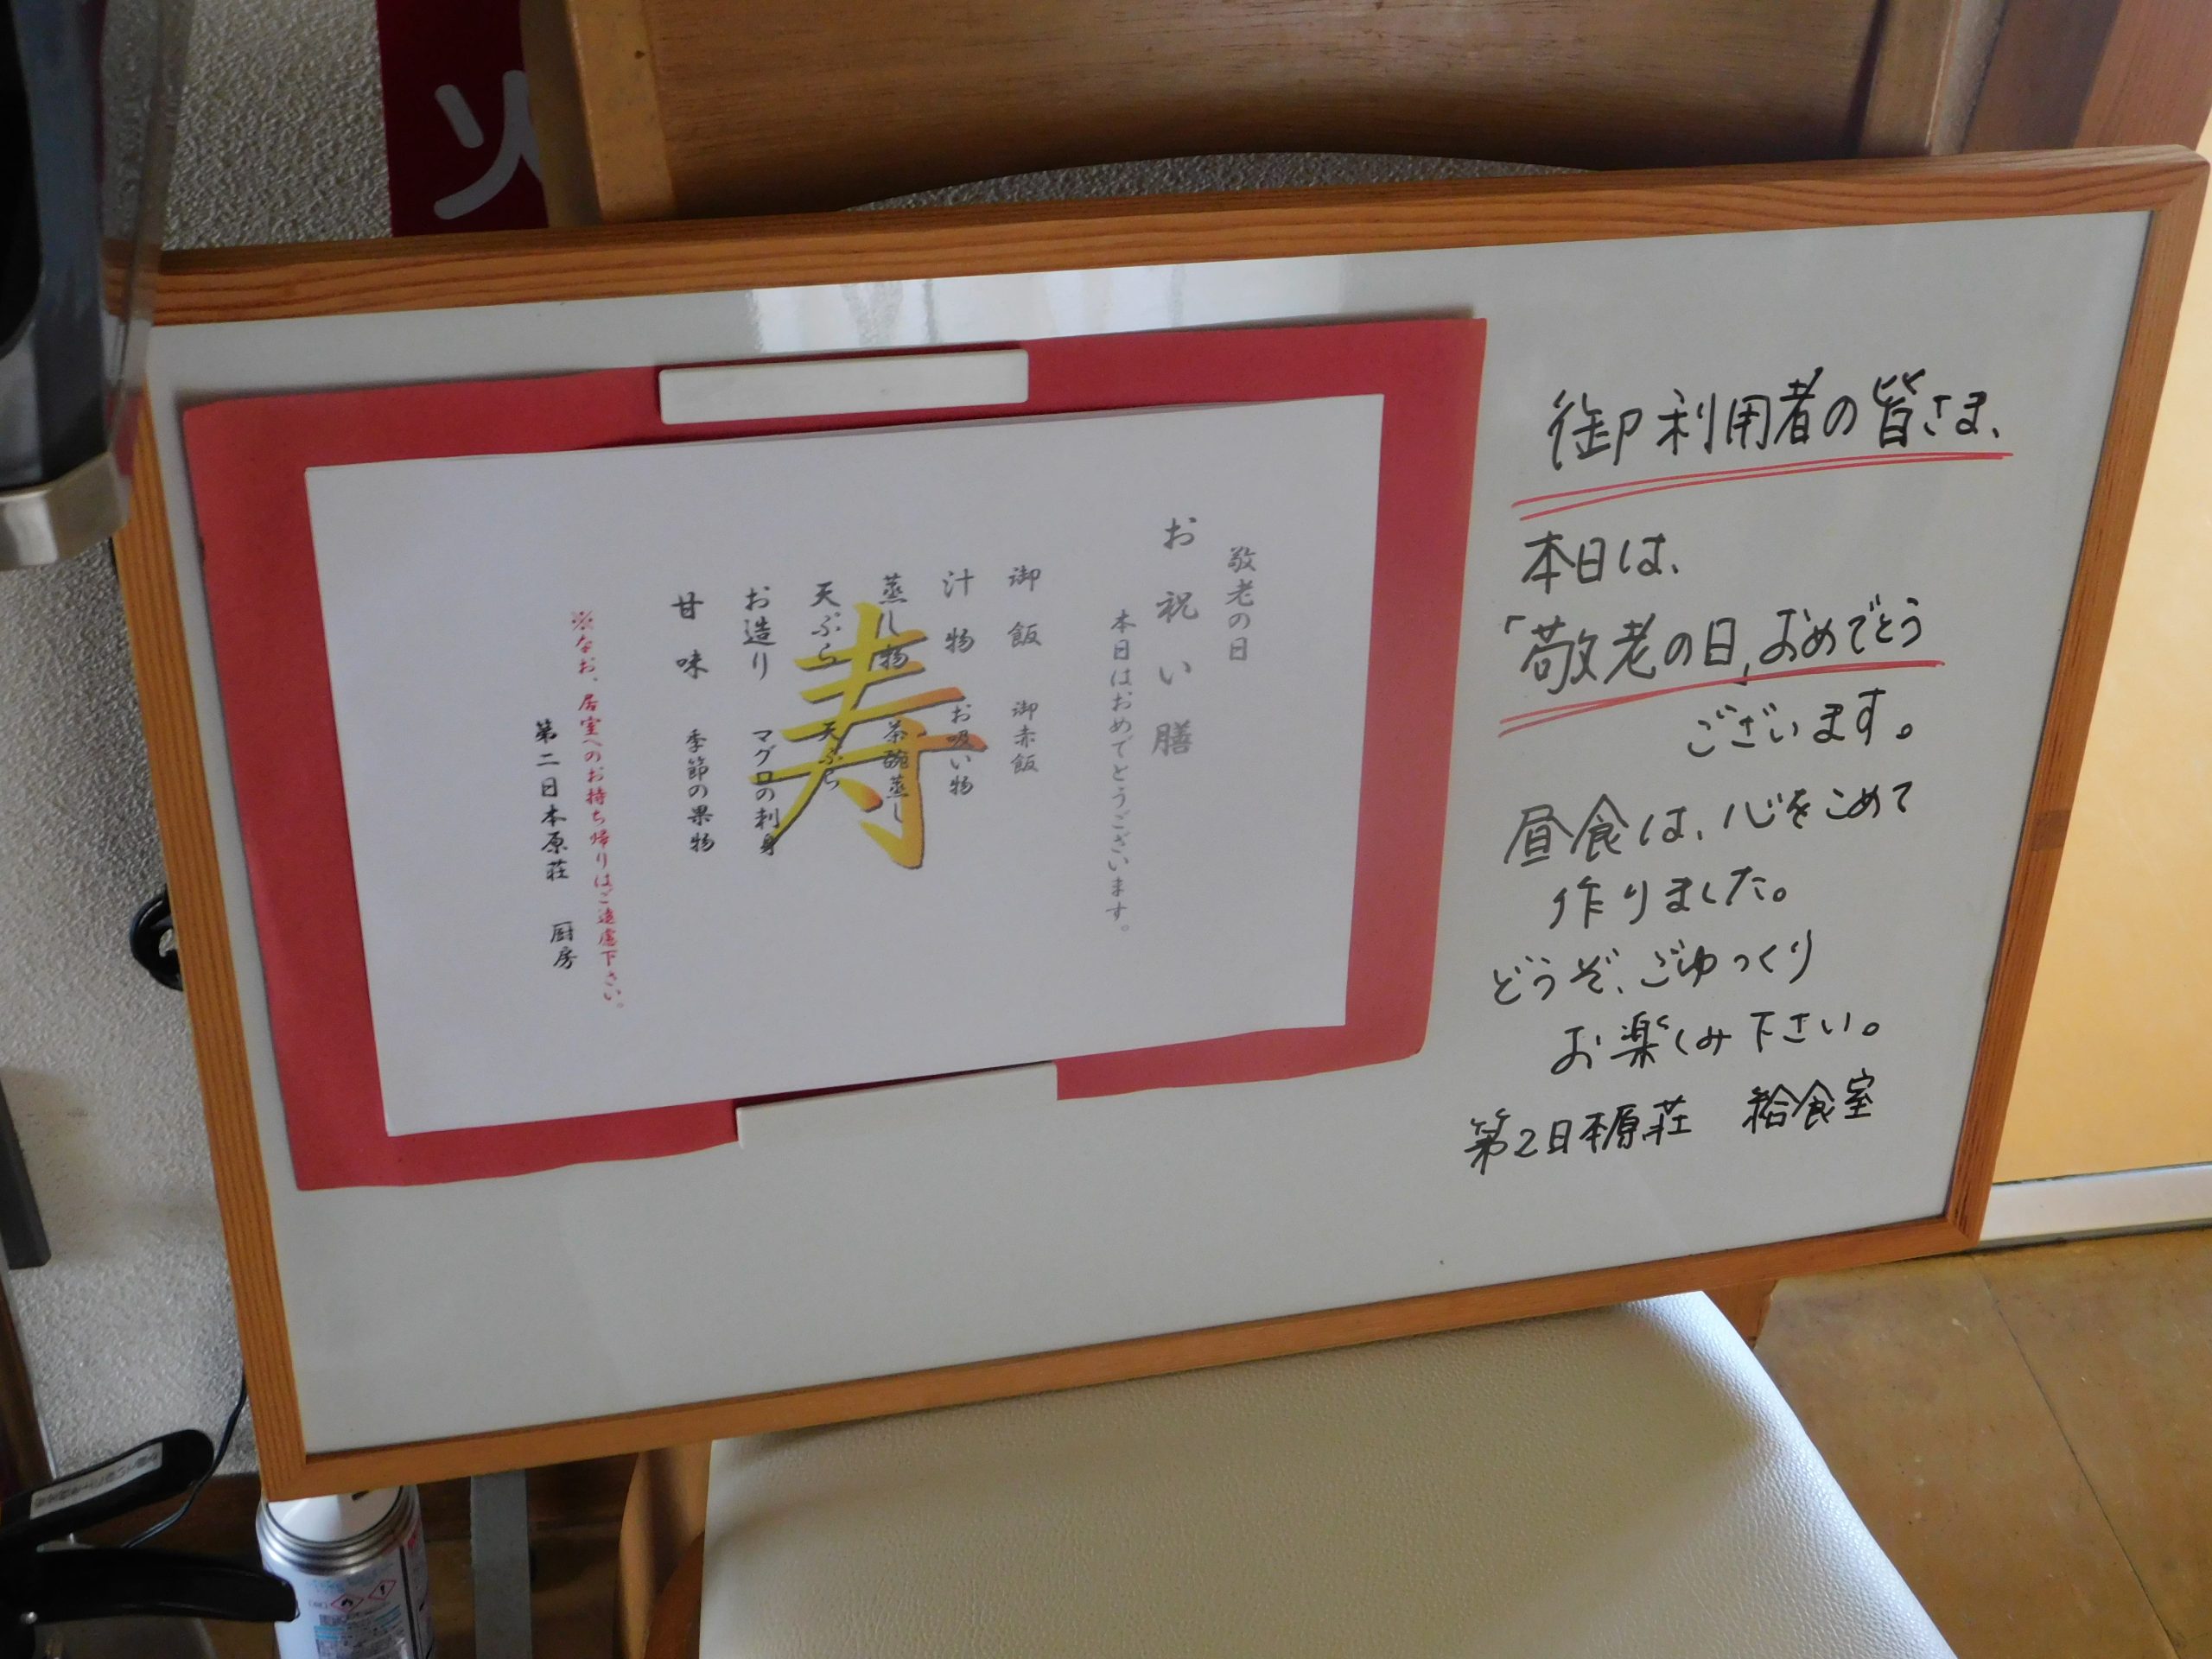 火
敬老の日
お祝い膳
本日はおめでとうございます。
御飯 御赤飯
汁物 お吸い物
蒸し物 茶碗蒸し
天ぷら 天ぷら
お造り マグロの刺身
甘味 季節の果物
寿
※なお、居室へのお持ち帰りはご遠慮下さい。
第二日本原荘 厨房
御利用者の皆さま、
本日は、
「敬老の日」おめでとう
ございます。
昼食は、心をこめて
作りました。
どうぞ、ごゆっくり
お楽しみ下さい。
第2日本原荘 給食室